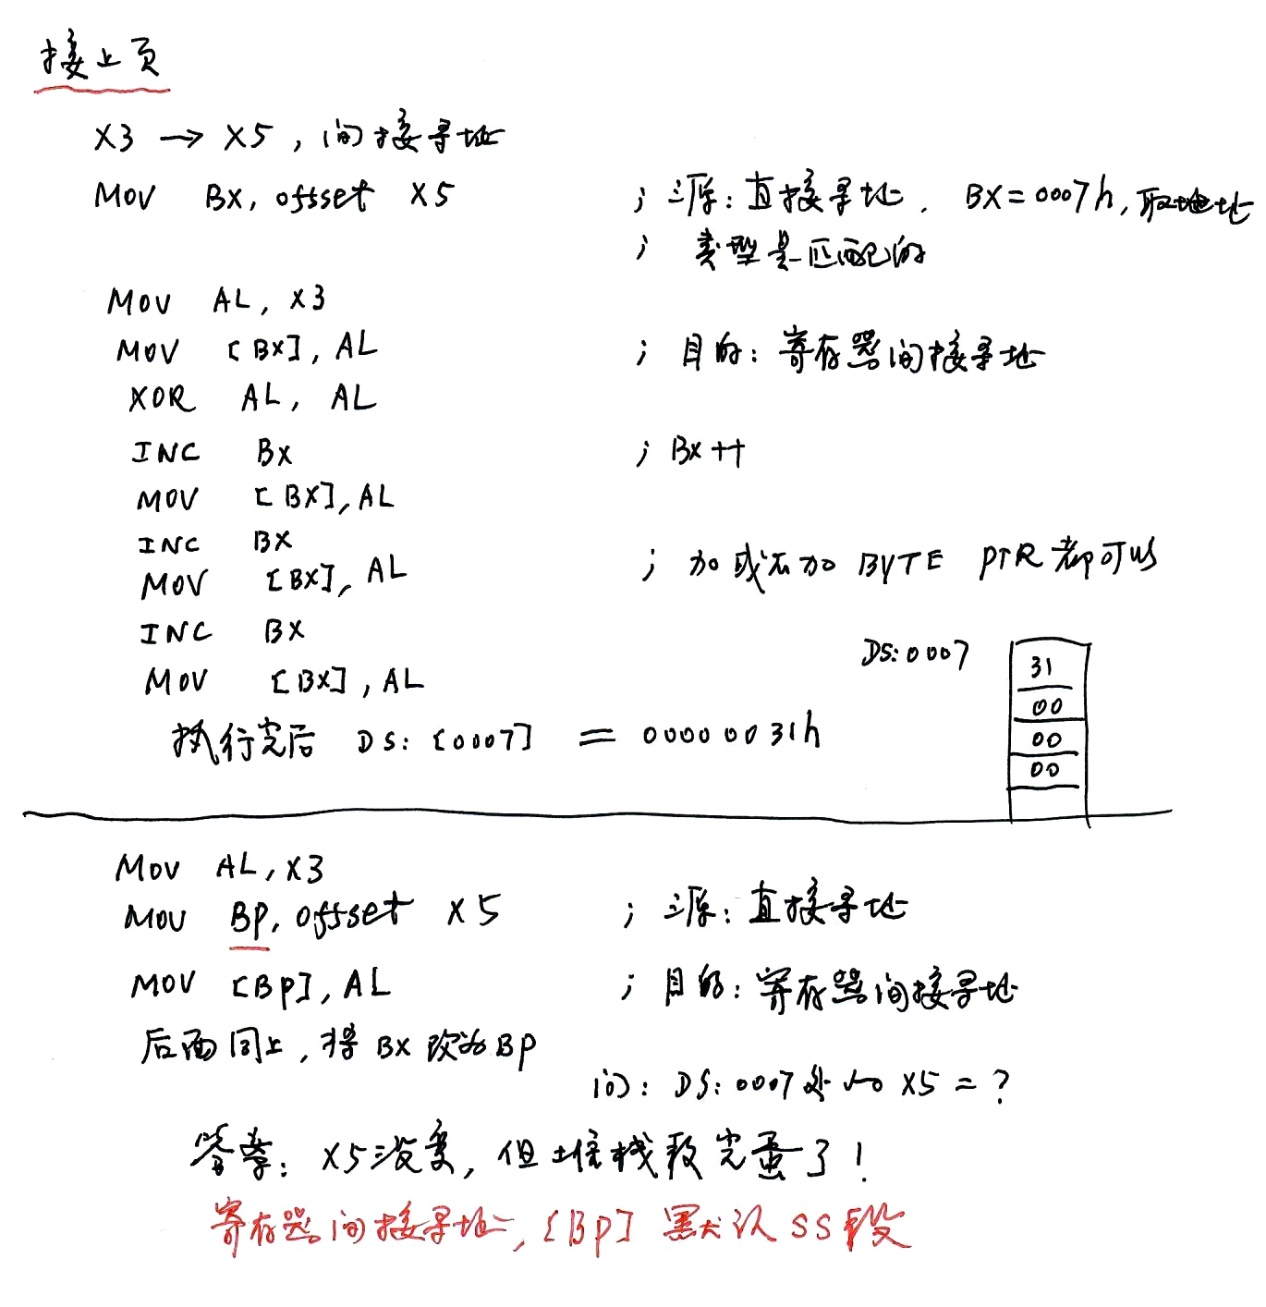 接上页
X3 → X5，间接寻址
MOV BX, offset X5 ；源：直接寻址． BX=0007h，取地址
； 类型是匹配的
MOV AL, X3
MOV [BX], AL ；目的：寄存器间接寻址
XOR AL, AL
INC BX ；BX++
MOV [BX], AL
INC BX
MOV [BX], AL ；加或不加 BYTE PTR 都可以
INC BX
MOV [BX], AL
DS:0007
31
00
00
00
执行完后 DS:[0007] = 00000031h
MOV AL, X3
MOV BP, offset X5 ；源：直接寻址
MOV [BP], AL ；目的：寄存器间接寻址
后面同上，将 BX 改为 BP
问：DS:0007 处的 X5 = ？
答案：X5没变，但堆栈段完蛋了！
寄存器间接寻址，[BP] 默认 SS 段